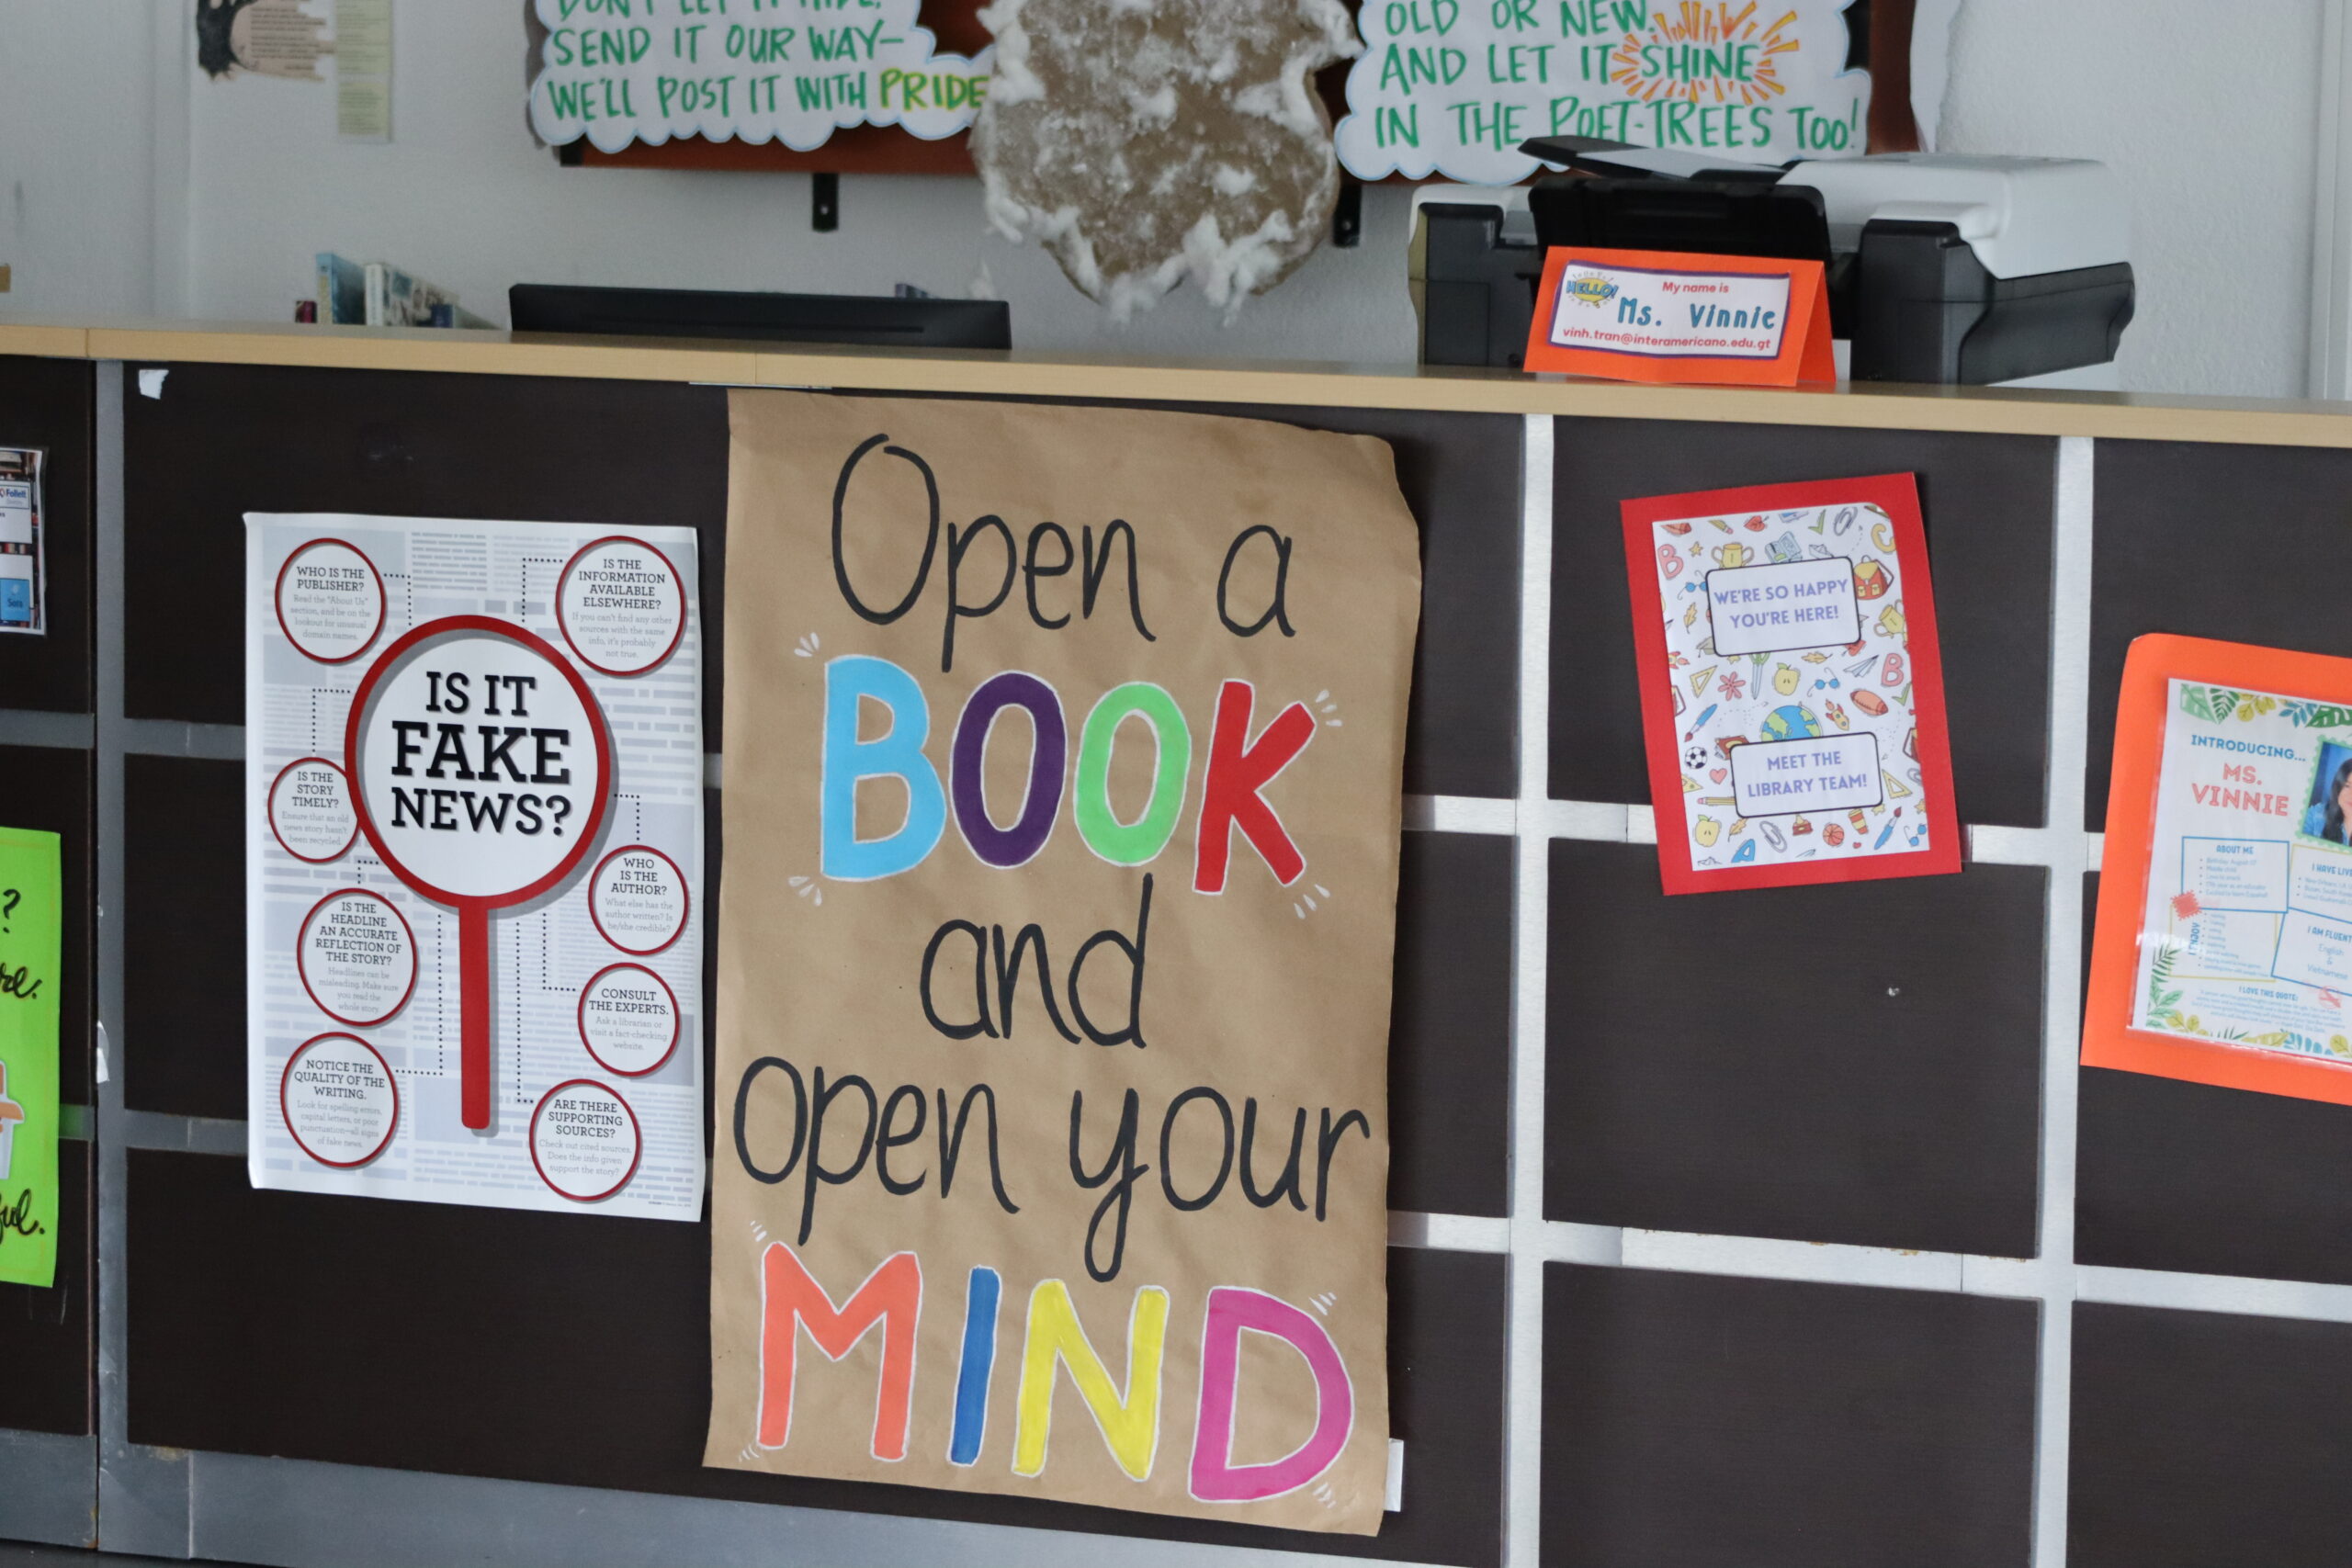 SEND IT OUR WAY-
WE'LL POST IT WITH PRIDE
OLD OR NEW.
AND LET IT SHINE
IN THE POET-TREES TOO!
HELLO!
My name is
Ms. Vinnie
vinh.tran@interamericano.edu.gt
Follett
Sora
?
IS IT
FAKE
NEWS?
WHO IS THE
PUBLISHER?
Read the "About Us"
section, and be on the
lookout for unusual
domain names.
IS THE
INFORMATION
AVAILABLE
ELSEWHERE?
If you can't find any other
sources with the same
info, it's probably
not true.
IS THE
STORY
TIMELY?
Ensure that an old
news story hasn't
been recycled.
WHO
IS THE
AUTHOR?
What else has the
author written? Is
he/she credible?
IS THE
HEADLINE
AN ACCURATE
REFLECTION OF
THE STORY?
Headlines can be
misleading. Make sure
you read the
whole story.
CONSULT
THE EXPERTS.
Ask a librarian or
visit a fact-checking
website.
NOTICE THE
QUALITY OF THE
WRITING.
Look for spelling errors,
capital letters, or poor
punctuation—all signs
of fake news.
ARE THERE
SUPPORTING
SOURCES?
Check out cited sources.
Does the info given
support the story?
Open a
BOOK
and
open your
MIND
WE'RE SO HAPPY
YOU'RE HERE!
MEET THE
LIBRARY TEAM!
INTRODUCING...
MS.
VINNIE
ABOUT ME
I HAVE LIVE
I AM FLUENT
English
&
Vietnamese
I LOVE THIS QUOTE: